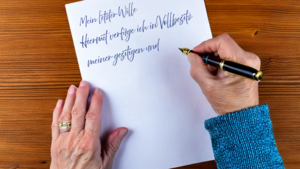 Mein letzter Wille
Hiermit verfüge ich in Vollbesitz
meiner geistigen und